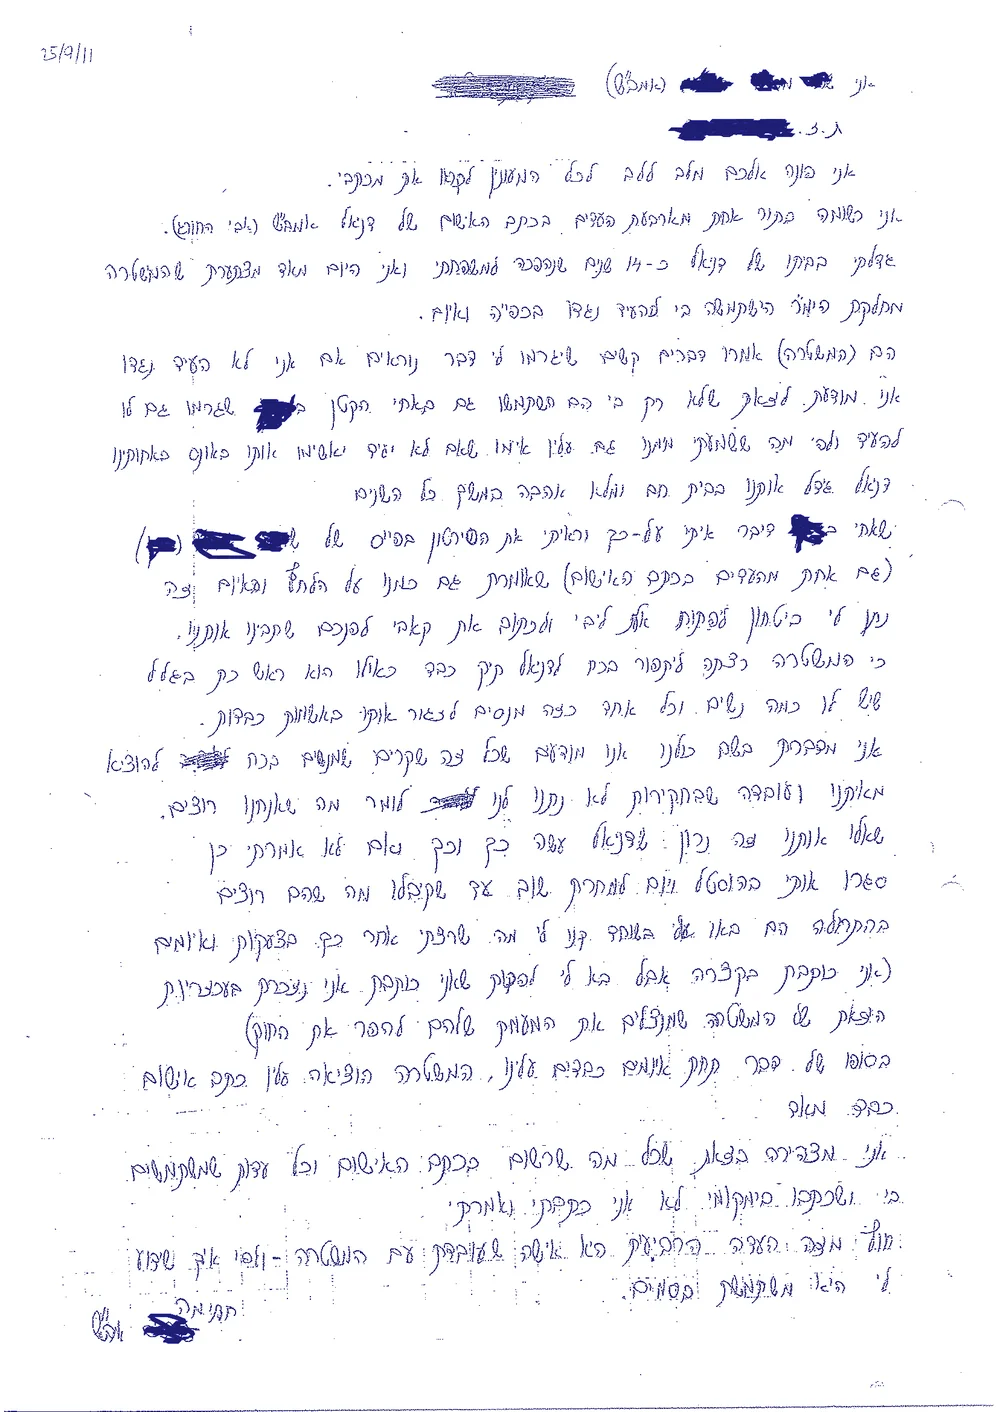 25/9/11
אני (אמב"ש)
ת.ז.
אני פונה אליכם מלב ללב לכל המעונין לקרוא את מכתבי.
אני רשומה בתור אחת מארבעת העדים בכתב האישום של דניאל אמב"ש (אבי החורג).
גדלתי בביתו של דניאל כ-14 שנים שנהפכה למשפחתי ואני היום מאד מצטערת שהמשטרה
מחלקת הימ"ר השתמשה בי להעיד נגדו בכפייה ואיום.
הם (המשטרה) אמרו דברים קשים שיגרמו לי דבר נוראים אם אני לא העיד נגדו
אני מודעת לזאת שלא רק בי הם השתמשו גם באחי הקטן ב שגרמו גם לו
להעיד ולפי מה ששמעתי ממנו גם עליו איימו שאם לא יגיד יאשימו אותו באונס באחותינו
דניאל גדל אותנו בבית חם ומלא אהבה במשך כל השנים
שאחי ב דיבר איתי על-כך וראיתי את הסירטון בפייס של ש ( )
(גם אחת מהעדים בכתב האישום) שאומרת גם כמונו על הלחץ והאיום זה
נתן לי ביטחון לפתוח את ליבי ולכתוב את כאבי לפניכם שתבינו אותנו.
כי המשטרה רצתה ליתפור בכח לדניאל תיק כבד כאילו הוא ראש כת בגלל
שיש לו כמה נשים וכל אחד כזה מנסים לסגור אותו באשמות כבדות.
אני מדברת בשם כולנו אנו מודעים שכל זה שקרים שמנסים בכח להוציא
מאיתנו ועובדה שבחקירות לא נתנו לנו לומר מה שאנחנו רוצים.
שאלו אותנו זה נכון שדניאל עשה כך וכך ואם לא אמרתי כן
סגרו אותי בהוסטל ויום למחרת שוב עד שקיבלו מה שהם רוצים
בהתחלה הם באו בשוחד קנו לי מה שרציתי אחר כך בצעקות ואיומים
(אני כותבת בקצרה אבל בא לי להקיא שאני כותבת אני נזכרת בעכזריות
הזאת של המשטרה שמנצלים את המעמד שלהם להפר את החוק)
בסופו של דבר תחת איומים כבדים עלינו, המשטרה הוציאה עליו כתב אישום
כבד מאד
אני מצהירה בזאת שכל מה שרשום בכתב האישום וכל עדות שמשתמשים
בי ושכתבו בימקומי לא אני כתבתי ואמרתי
חוץ מזה העדה הרביעית היא אישה שעובדת עם המשטרה - ולפי איך שידוע
לי היא משתמשת בסמים.
חתימה
אמב"ש